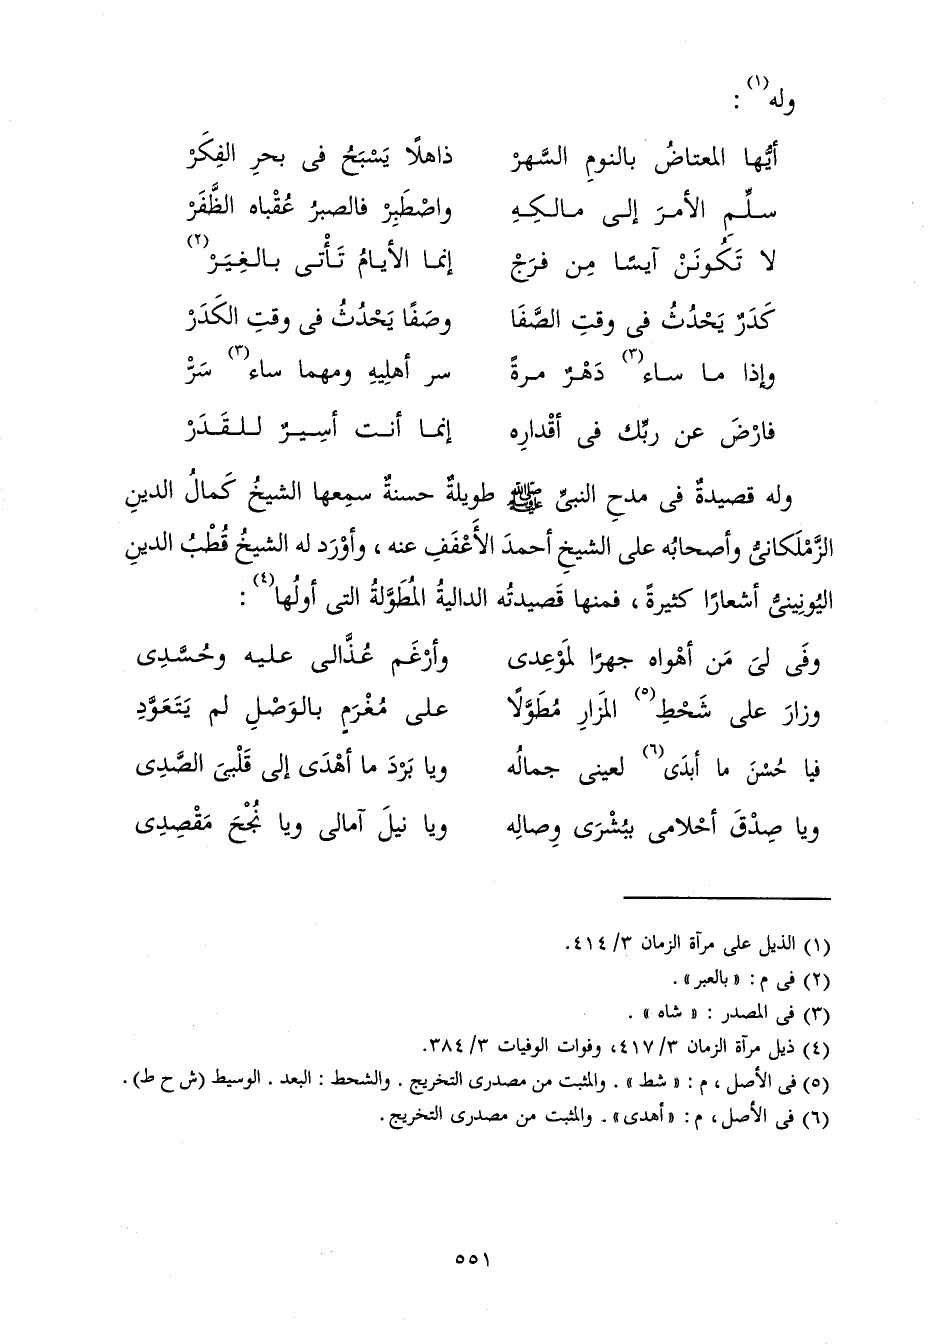 وله(١) :
أيُّها المعتاضُ بالنومِ السَّهرْ ذاهلًا يَسْبَحُ فى بحرِ الفِكَرْ
سلِّمِ الأمرَ إلى مالكِهِ واصْطَبِرْ فالصبرُ عُقْباه الظَّفَرْ
لا تَكُونَنْ آيسًا مِن فرَجْ إنما الأيامُ تَأْتى بالغِيَرْ(٢)
كَدَرٌ يَحْدُثُ فى وقتِ الصَّفَا وصَفًا يَحْدُثُ فى وقتِ الكَدَرْ
وإذا ما ساء(٣) دَهْرٌ مرةً سر أهلِيهِ ومهما ساء(٣) سَرّْ
فارْضَ عن ربِّك فى أقْدارِه إنما أنت أسِيرٌ للقَدَرْ
وله قصيدةٌ فى مدحِ النبىِّ ﷺ طويلةٌ حسنةٌ سمِعها الشيخُ كَمالُ الدينِ
الزَّمْلَكانىُّ وأصحابُه على الشيخِ أحمدَ الأَعْفَفِ عنه ، وأوْرَد له الشيخُ قُطْبُ الدينِ
اليُونِينىُّ أشعارًا كثيرةً ، فمنها قَصيدتُه الداليةُ المُطَوَّلةُ التى أولُها(٤) :
وفَى لىَ مَن أهْواه جهرًا لمَوْعِدى وأرْغَم عُذَّالى عليه وحُسَّدِى
وزارَ على شَحْطِ(٥) المَزارِ مُطَوَّلًا على مُغْرَمٍ بالوَصْلِ لم يَتَعَوَّدِ
فيا حُسْنَ ما أبدَى(٦) لعينى جمالُه ويا بَرْدَ ما أهْدَى إلى قَلْبىَ الصَّدِى
ويا صِدْقَ أحْلامى ببُشْرَى وِصالِه ويا نيلَ آمالى ويا نُجْحَ مَقْصِدِى
(١) الذيل على مرآة الزمان ٣/ ٤١٤.
(٢) فى م : « بالعبر » .
(٣) فى المصدر : « شاه » .
(٤) ذيل مرآة الزمان ٣/ ٤١٧، وفوات الوفيات ٣/ ٣٨٤.
(٥) فى الأصل ، م : « شط » . والمثبت من مصدرى التخريج . والشحط : البعد . الوسيط (ش ح ط) .
(٦) فى الأصل ، م : « أهدى » . والمثبت من مصدرى التخريج .
٥٥١